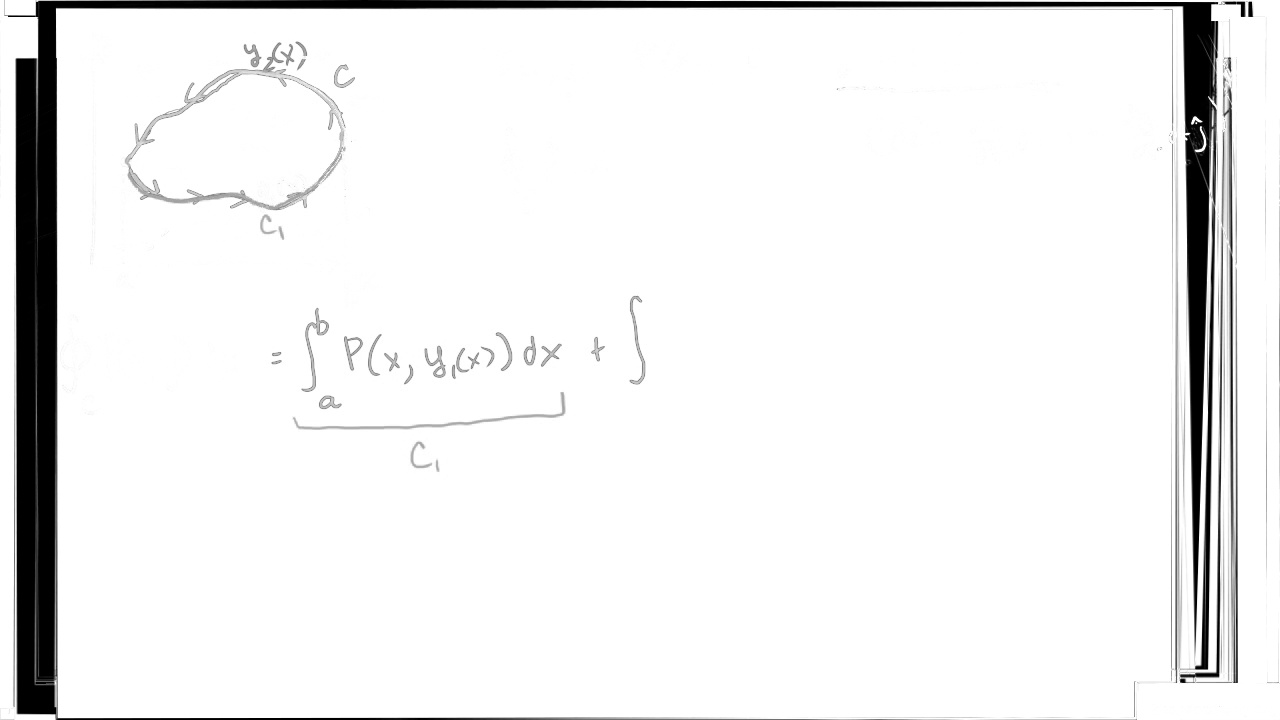 y₂(x)
C
C₁
= ∫ₐᵇ P(x, y₁(x)) dx + ∫
C₁